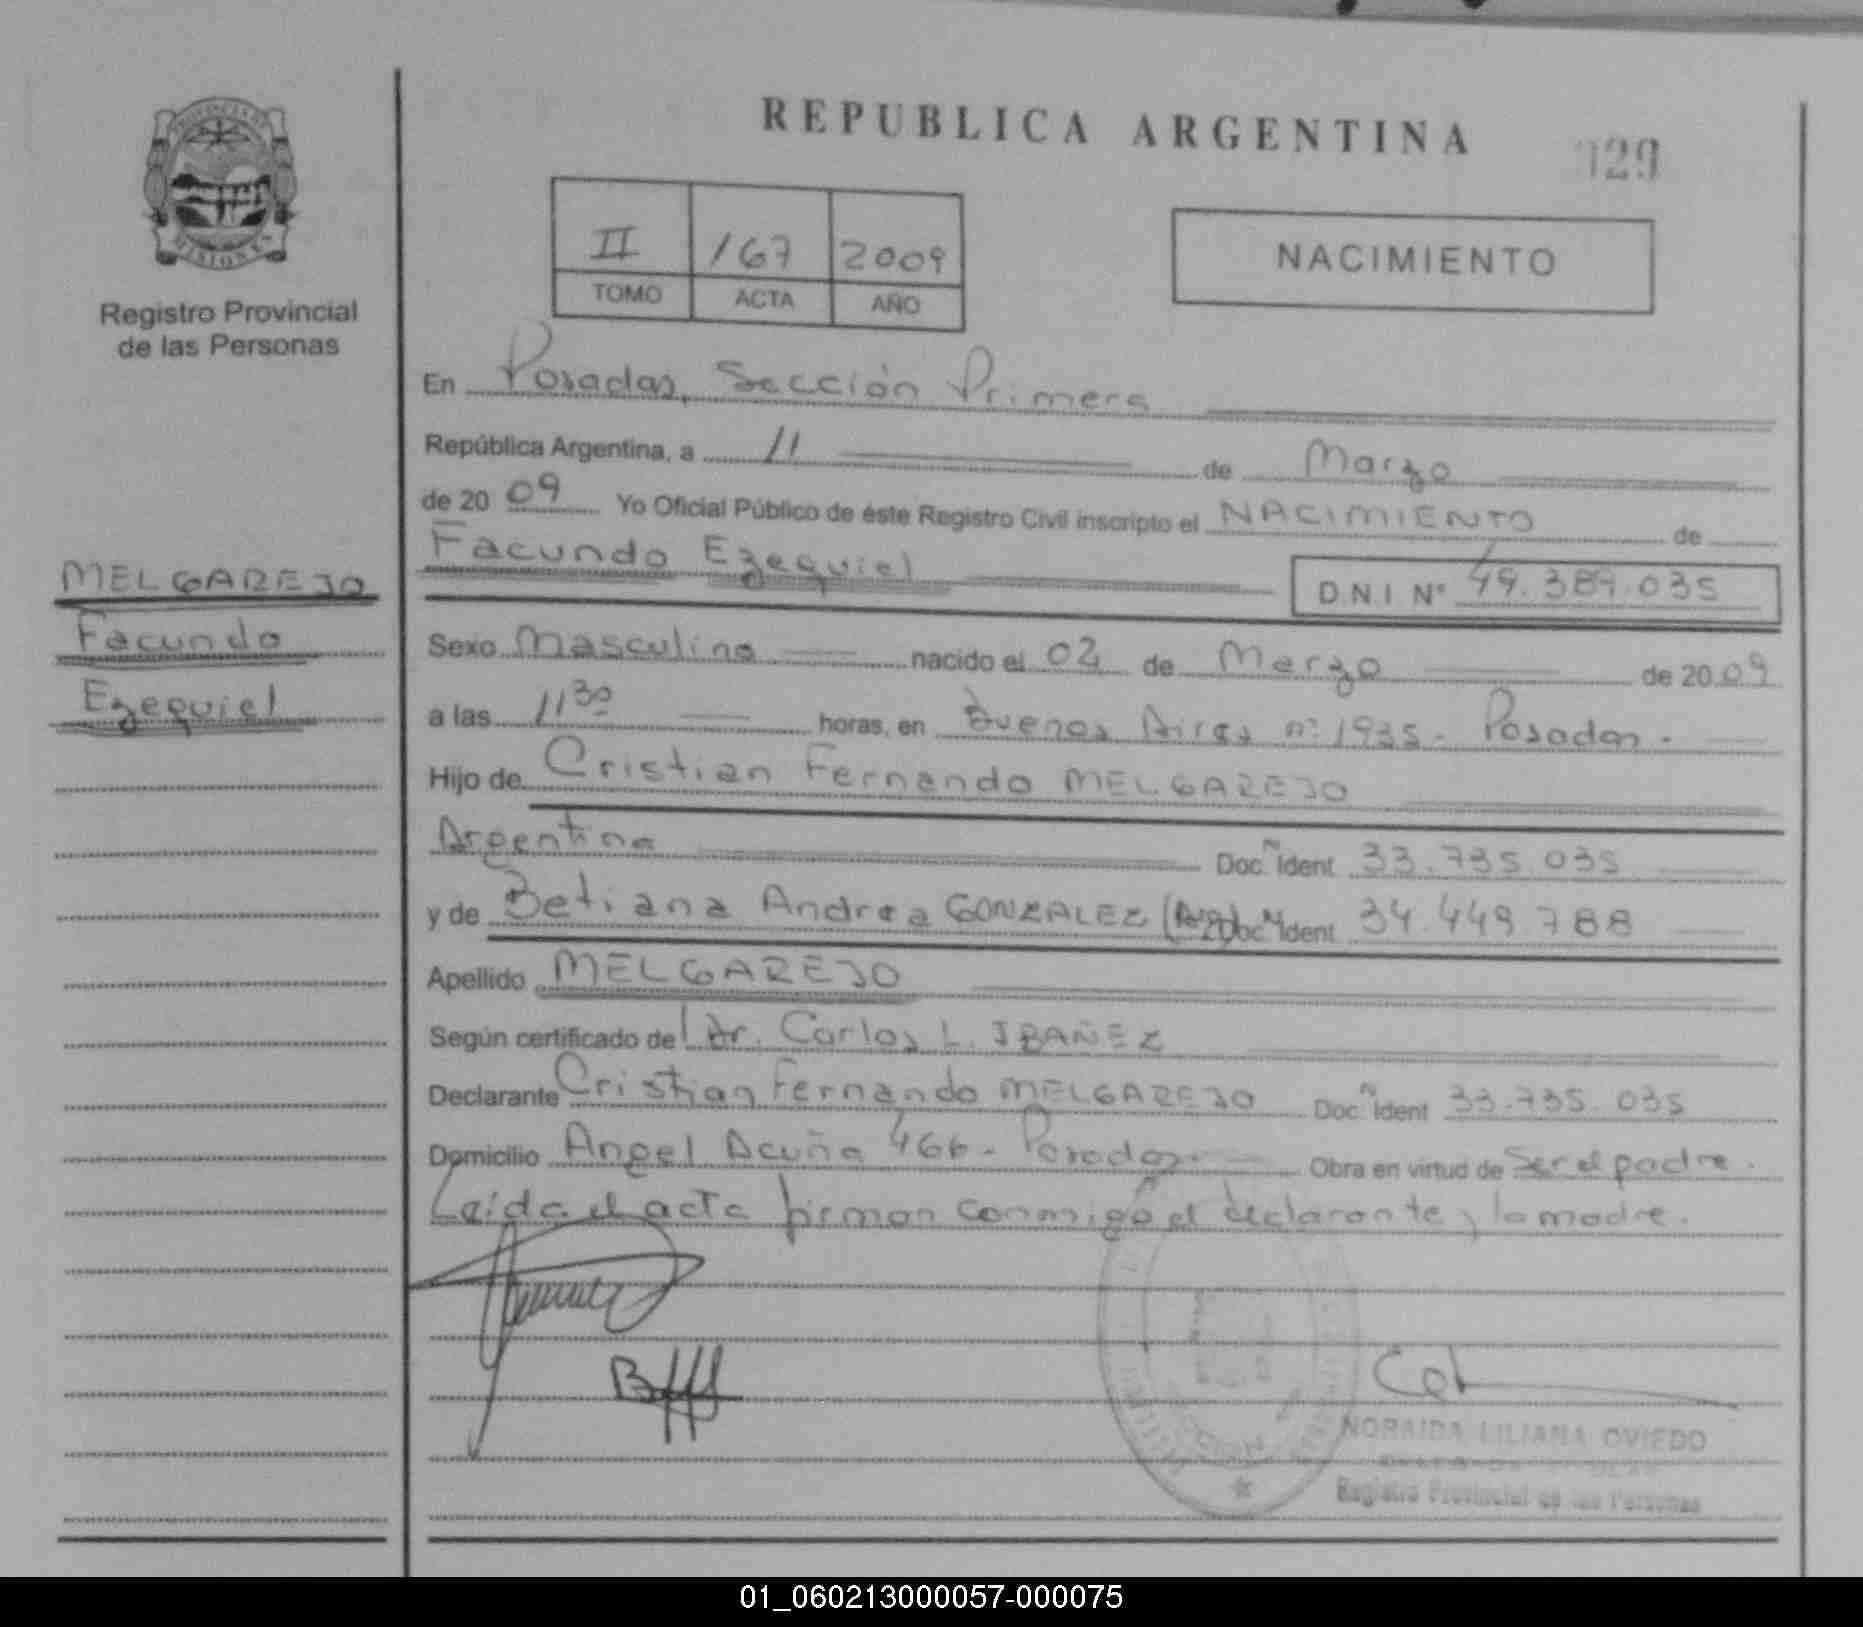 REPUBLICA ARGENTINA
029
PROVINCIA DE
MISIONES
Registro Provincial
de las Personas
II 167 2009
TOMO ACTA AÑO
NACIMIENTO
En Posadas, Sección Primera
República Argentina, a 11 de Marzo
de 20 09 Yo Oficial Público de éste Registro Civil inscripto el NACIMIENTO de
Facundo Ezequiel
D.N.I. Nº 49.389.035
MELGAREJO
Facundo
Ezequiel
Sexo Masculino nacido el 02 de Marzo de 20 09
a las 11 30 horas, en Buenos Aires nº 1935 - Posadas -
Hijo de Cristian Fernando MELGAREJO
Argentino Doc. Ident 33.735.035
y de Betiana Andrea GONZALEZ (Arg) Doc. Ident 34.449.788
Apellido MELGAREJO
Según certificado de Dr. Carlos L. IBAÑEZ
Declarante Cristian Fernando MELGAREJO Doc. Ident 33.735.035
Domicilio Angel Acuña 466 - Posadas - Obra en virtud de Ser el padre.
Leída el acta firman conmigo el declarante y la madre.
NORAIDA LILIANA OVIEDO
Registro Provincial de las Personas
01_060213000057-000075